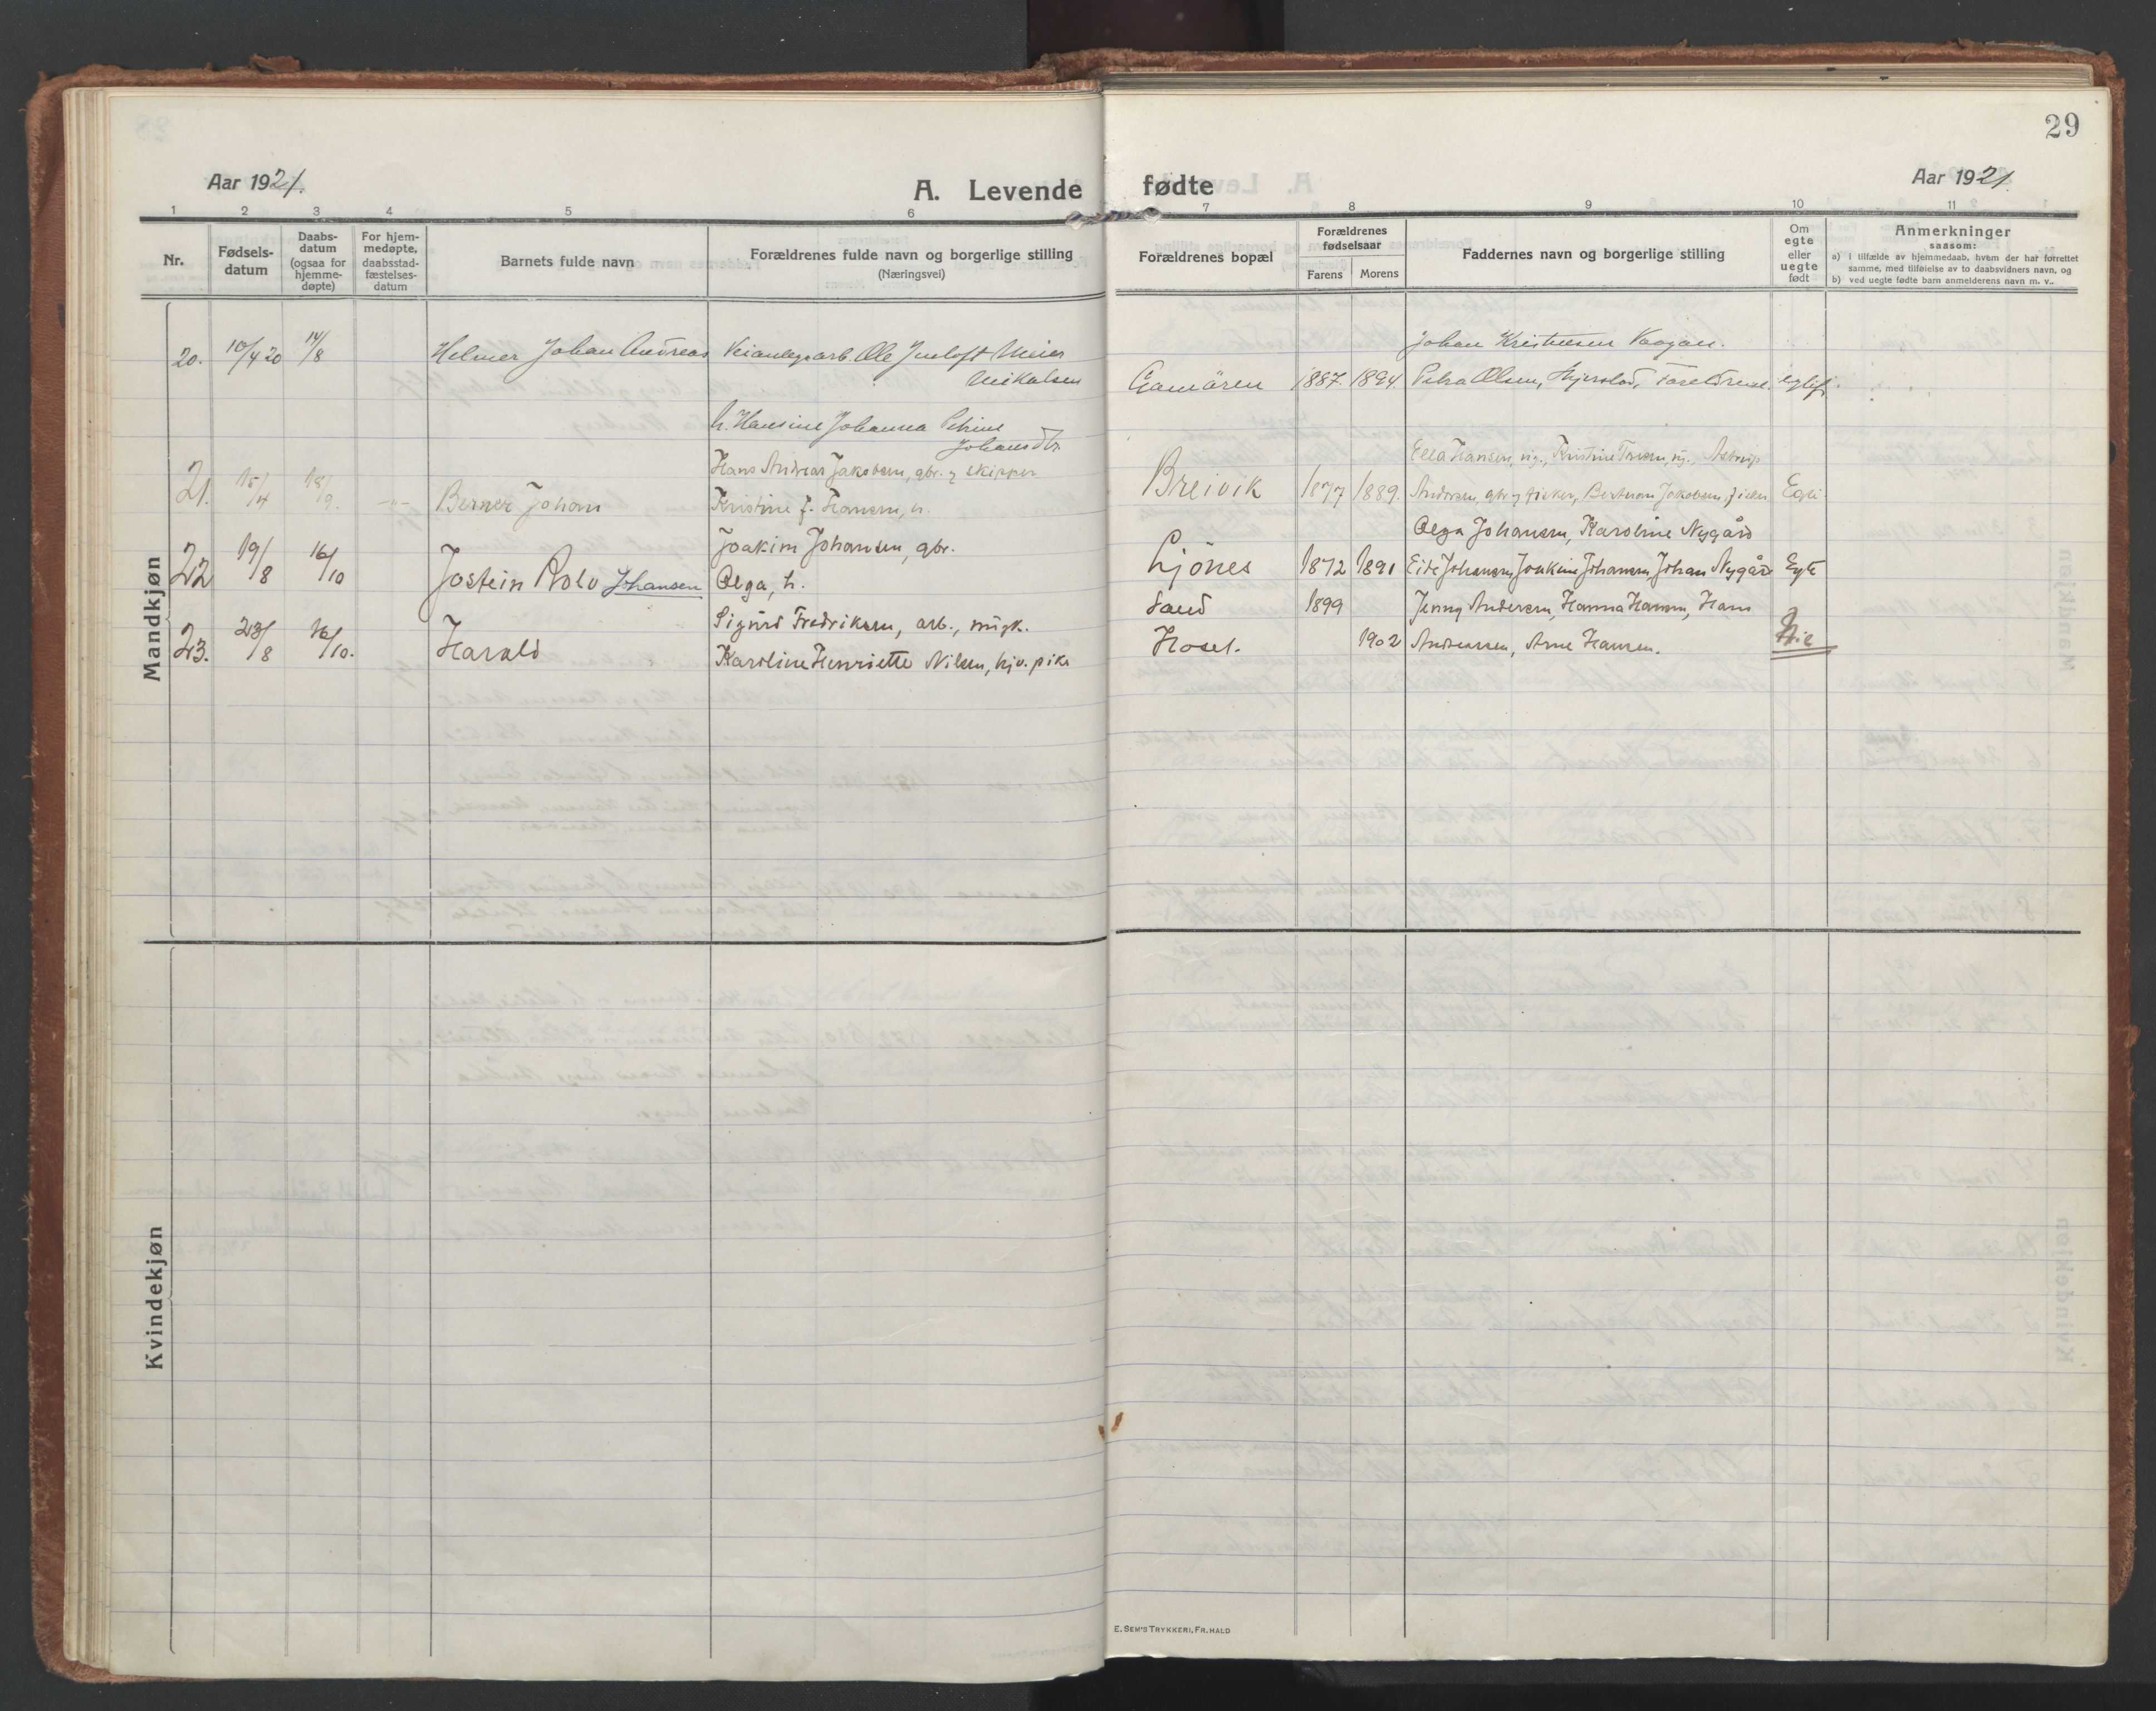 29
Aar 1921.
A. Levende fødte
Aar 1921
1 2 3 4 5 6 7 8 9 10 11
Nr.
Fødsels-
datum
Daabs-
datum
(ogsaa for
hjemme-
døpte)
For hjem-
medøpte,
daabsstad-
fæstelses-
datum
Barnets fulde navn
Forældrenes fulde navn og borgerlige stilling
(Næringsvei)
Forældrenes bopæl
Forældrenes
fødselsaar
Farens Morens
Faddernes navn og borgerlige stilling
Om
egte
eller
uegte
født
Anmerkninger
saasom:
a) i tilfælde av hjemmedaab, hvem der har forrettet
samme, med tilføielse av to daabsvidners navn, og
b) ved uegte fødte barn anmelderens navn m. v..
Mandkjøn
20. 10/4 20 14/8 Helmer Johan Andreas Veianlegsarb. Ole Meier
Mikalsen
h. Hansine Johanna Petrine
Johansdtr
1887. 1894
Johan Kristensen Vaagan.
Petra Olsen,
21. 15/4 18/9. -"- Berner Johan
Hans Andreas Jakobsen, gbr. & skipper
Kristine J. Hansen, h.
Breivik 1877 1889.
Ella Hansen, ug., Kristine
Andersen, gbr & fisker, Jakobsen, fisker
22 19/8 16/10 Jostein Rolv Johansen
Joakim Johansen, gbr.
Olga, h.
Ljønes 1872 1891
Olga Johansen, Karoline Nygård
Johansen, Joakim Johansen, Johan Nygård Egte
23. 28/8 16/10. Harald
Sigurd Fredriksen, arb., ungk.
Karoline Henriette Nilsen, hjv. pike
Sand 1899
Hosel. 1902
Jenny Andersen, Hanna Hansen, Hans
Andreassen, Arne Hansen.
Kvindekjøn
E. SEM'S TRYKKERI, FR.HALD